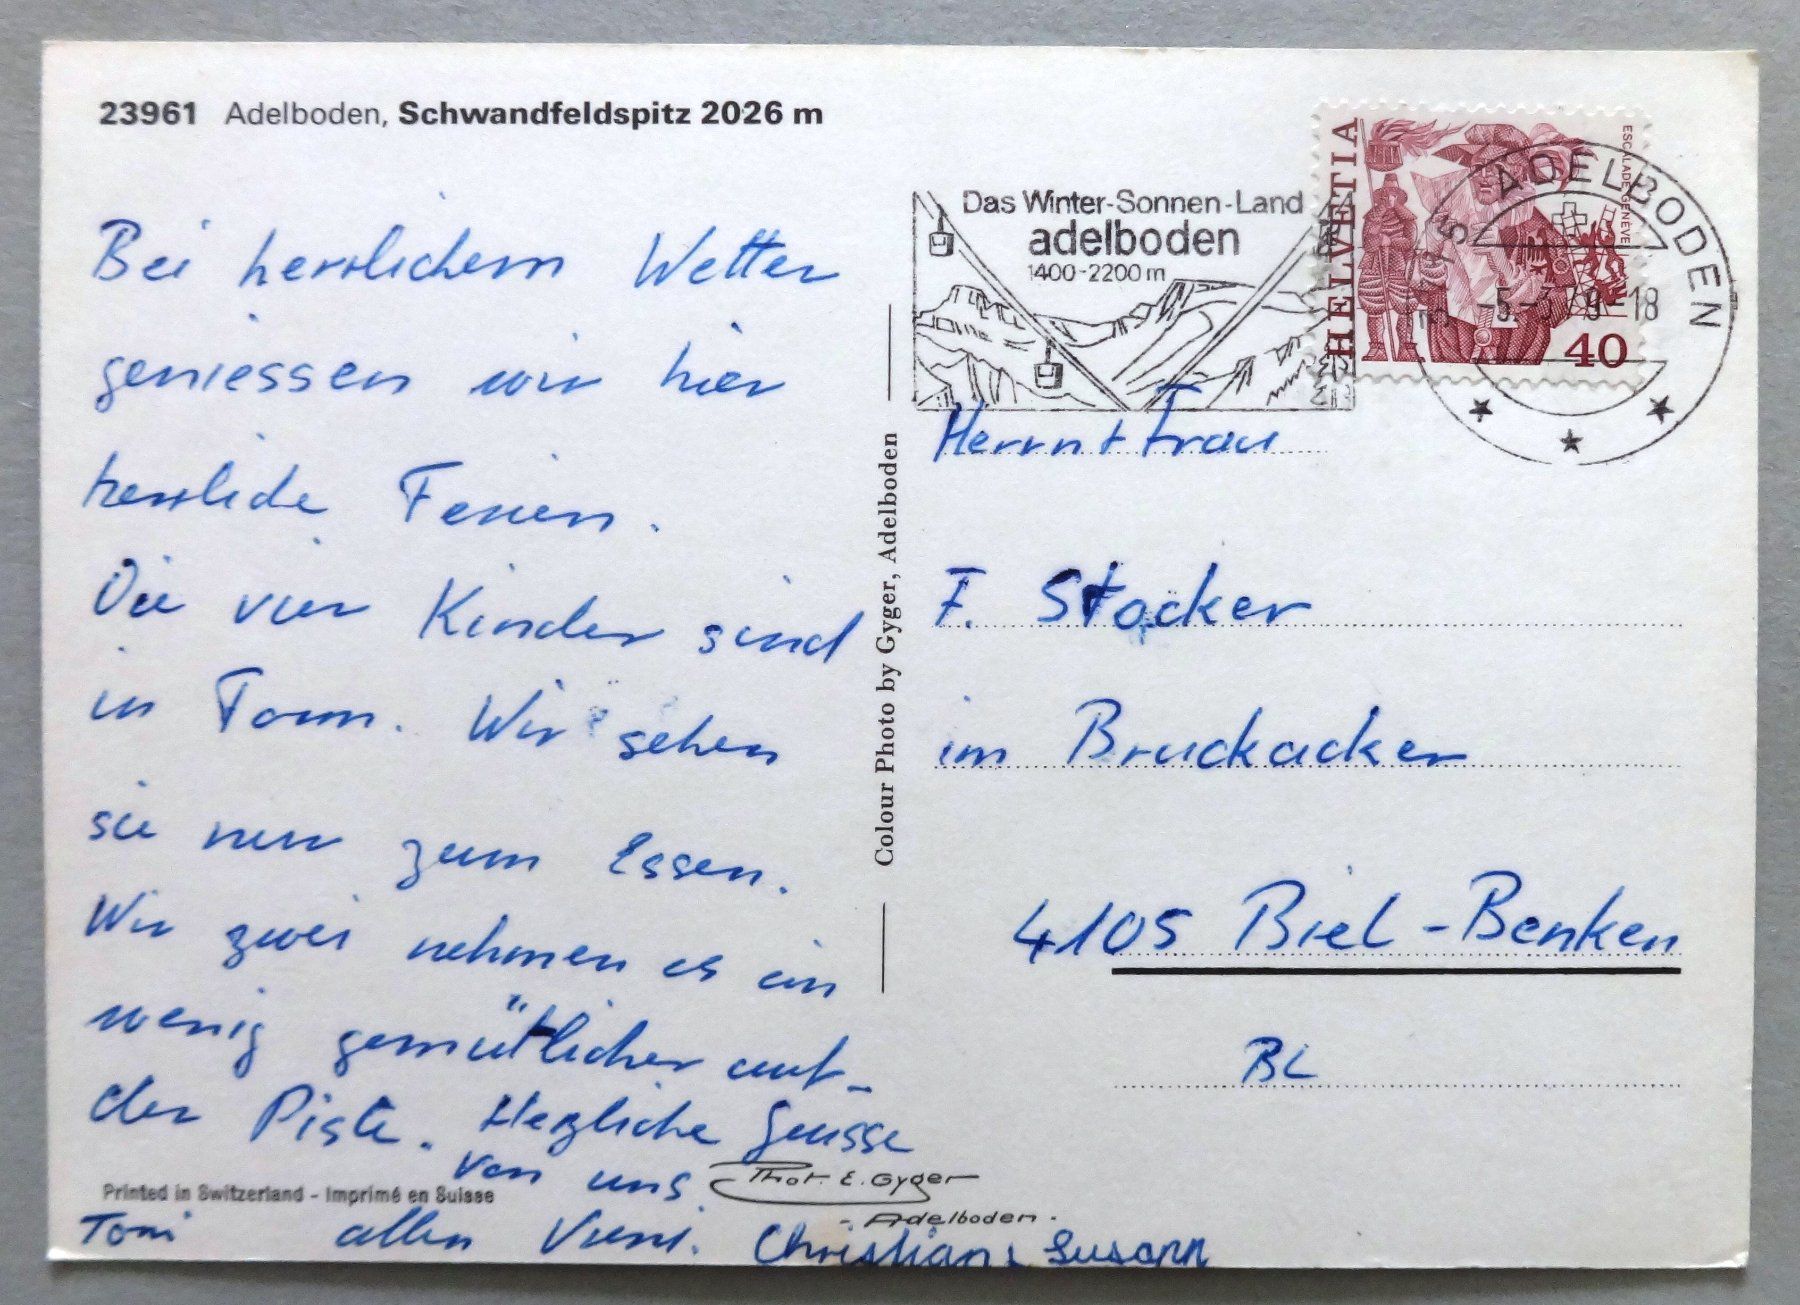 23961 Adelboden, Schwandfeldspitz 2026 m
Bei herrlichem Wetter
geniessen wir hier
herrliche Ferien.
Die vier Kinder sind
in Form. Wir sehen
sie nur zum Essen.
Wir zwei nehmen es ein
wenig gemütlicher auf
der Piste. Herzliche Grüsse
von uns
allen
Toni
Christian, Susann
Printed in Switzerland - Imprimé en Suisse
Phot. E. Gyger
- Adelboden -
Colour Photo by Gyger, Adelboden
Das Winter-Sonnen-Land
adelboden
1400-2200 m
HELVETIA
ESCALADE GENEVE
40
ADELBODEN
-5.-3.79-18
Herrn + Frau
F. Stocker
im Bruckacker
4105 Biel-Benken
BL